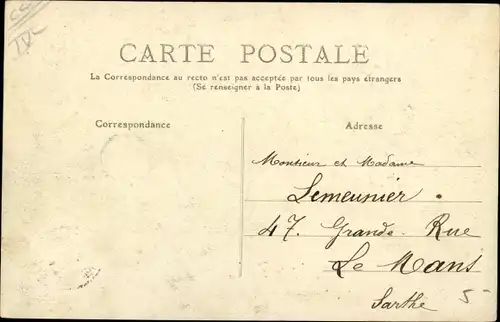 CARTE POSTALE
La Correspondance au recto n'est pas acceptée par tous les pays étrangers
(Se renseigner à la Poste)
Correspondance
Adresse
Monsieur et Madame
Lemeunier.
47. Grande. Rue
Le Mans
Sarthe
5-